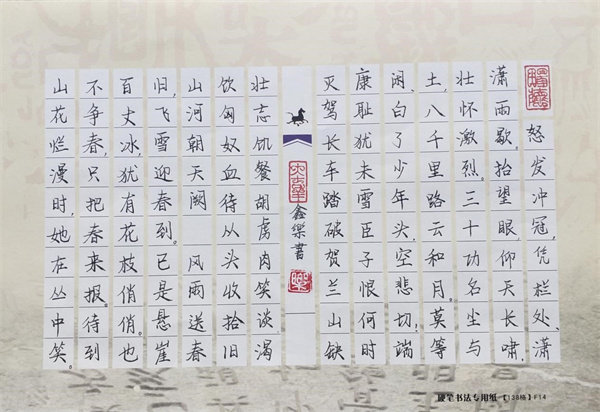 怒发冲冠,凭栏处、潇
潇雨歇。抬望眼,仰天长啸,
壮怀激烈。三十功名尘与
土,八千里路云和月。莫等
闲、白了少年头,空悲切,端
康耻犹未雪臣子恨何时
灭驾长车踏破贺兰山缺
鑫樂書
壮志饥餐胡虏肉笑谈渴
饮匈奴血待从头收拾旧
山河朝天阙 风雨送春
旧,飞雪迎春到。已是悬崖
百丈冰,犹有花枝俏。俏也
不争春,只把春来报。待到
山花烂漫时,她在丛中笑。
硬笔书法专用纸【138格】F14